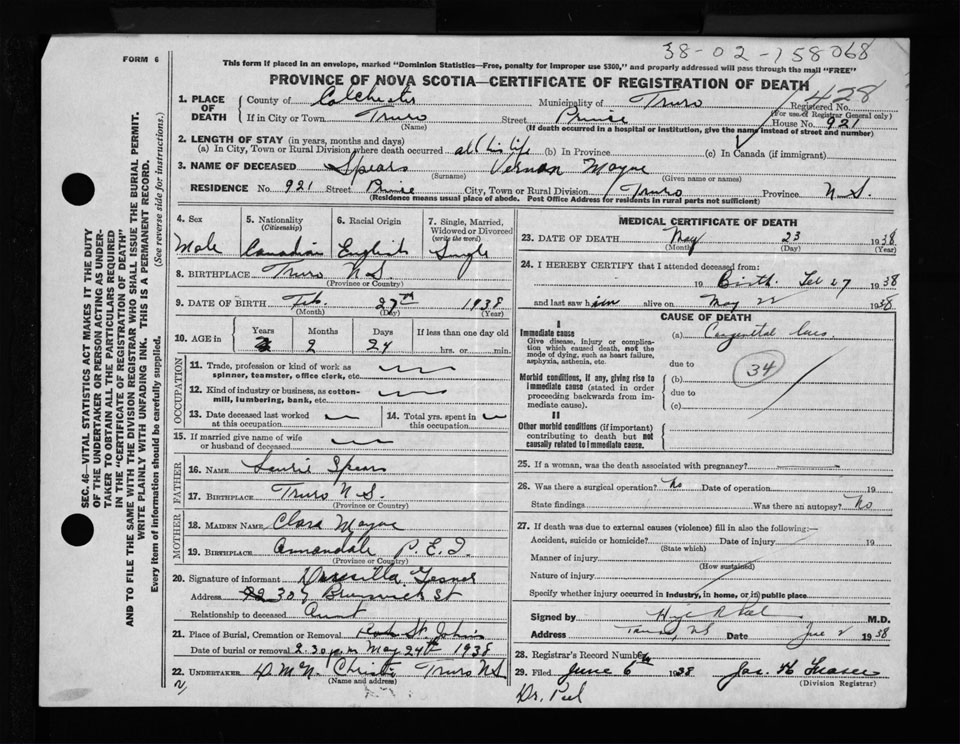 38-02-158068
FORM 6
This form if placed in an envelope, marked "Dominion Statistics—Free, penalty for improper use $300," and properly addressed will pass through the mail "FREE"
PROVINCE OF NOVA SCOTIA—CERTIFICATE OF REGISTRATION OF DEATH
428
1. PLACE OF DEATH
County of Colchester Municipality of Truro Registered No.
(For use of Registrar General only)
If in City or Town Truro Street Prince House No. 921
(Name) (If death occurred in a hospital or institution, give the name instead of street and number)
2. LENGTH OF STAY (in years, months and days)
(a) In City, Town or Rural Division where death occurred all his life (b) In Province (c) In Canada (if immigrant)
3. NAME OF DECEASED Spears Vernon Mayne
(Surname) (Given name or names)
RESIDENCE No. 921 Street Prince City, Town or Rural Division Truro Province N.S.
(Residence means usual place of abode. Post Office Address for residents in rural parts not sufficient)
4. Sex Male
5. Nationality (Citizenship) Canadian
6. Racial Origin English
7. Single, Married, Widowed or Divorced (write the word) Single
8. BIRTHPLACE Truro N.S.
(Province or Country)
9. DATE OF BIRTH Feb. 27th 1938
(Month) (Day) (Year)
10. AGE in Years Months Days If less than one day old
2 24 hrs. or min.
OCCUPATION
11. Trade, profession or kind of work as spinner, teamster, office clerk, etc.
12. Kind of industry or business, as cotton-mill, lumbering, bank, etc.
13. Date deceased last worked at this occupation
14. Total yrs. spent in this occupation
15. If married give name of wife or husband of deceased
FATHER
16. NAME Laurie Spears
17. BIRTHPLACE Truro N.S.
(Province or Country)
MOTHER
18. MAIDEN NAME Clara Mayne
19. BIRTHPLACE Annandale P.E.I.
(Province or Country)
20. Signature of informant Drusilla
Address 307 Brunswick St
Relationship to deceased Aunt
21. Place of Burial, Cremation or Removal St. Johns
Date of burial or removal 2.30 p.m May 24th 1938
22. UNDERTAKER D. McN. Christie Truro N.S
(Name and address)
MEDICAL CERTIFICATE OF DEATH
23. DATE OF DEATH May 23 1938
(Month) (Day) (Year)
24. I HEREBY CERTIFY that I attended deceased from:
19 Birth. Feb 27 1938
and last saw him alive on May 22 1938
CAUSE OF DEATH
I
Immediate cause (a) Congenital lues
Give disease, injury or complication which caused death, not the mode of dying, such as heart failure, asphyxia, asthenia, etc.
due to
34
Morbid conditions, if any, giving rise to immediate cause (stated in order proceeding backwards from immediate cause).
(b)
due to
(c)
II
Other morbid conditions (if important) contributing to death but not causally related to immediate cause.
25. If a woman, was the death associated with pregnancy?
26. Was there a surgical operation? No Date of operation 19
State findings Was there an autopsy? No
27. If death was due to external causes (violence) fill in also the following:—
Accident, suicide or homicide? Date of injury 19
(State which)
Manner of injury
(How sustained)
Nature of injury
Specify whether injury occurred in industry, in home, or in public place
Signed by M.D.
Address Truro, NS Date June 2 1938
28. Registrar's Record Number
29. Filed June 6 1938 Jas. H.
(Division Registrar)
Dr. Peel
SEC. 46—VITAL STATISTICS ACT MAKES IT THE DUTY
OF THE UNDERTAKER OR PERSON ACTING AS UNDER-
TAKER TO OBTAIN ALL THE PARTICULARS REQUIRED
IN THE "CERTIFICATE OF REGISTRATION OF DEATH"
AND TO FILE THE SAME WITH THE DIVISION REGISTRAR WHO SHALL ISSUE THE BURIAL PERMIT.
WRITE PLAINLY WITH UNFADING INK. THIS IS A PERMANENT RECORD.
Every item of information should be carefully supplied. (See reverse side for instructions.)